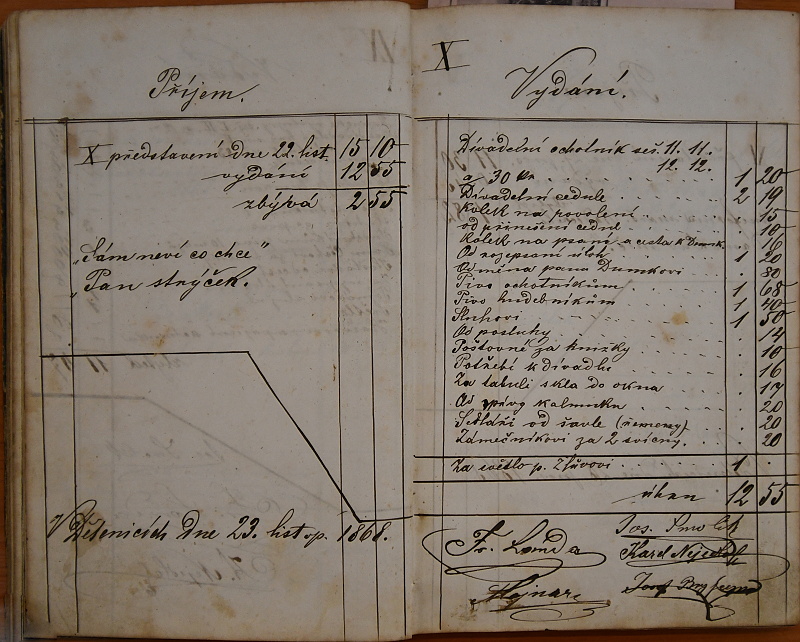 Příjem.
X představení dne 22. list. 15 10
vydání 12 55
zbývá 2 55
„Sám neví co chce"
„Pan strýček.
V Dětenicích dne 23. listop. 1868.
X
Vydání.
Divadelní ochotník seš. 11. 11.
12. 12.
a 30 kr. 1 20
Divadelní cedule 2 19
Kolek na povolení 15
od přinešení cedul 10
Kolek na psaní a cesta k 16
Od rozepsaní úloh 1 20
Odměna panu Dumkovi 80
Pivo ochotníkům 1 68
Pivo hudebníkům 1 40
Sluhovi 1 50
Od posluhy 14
Poštovné za knížky 10
Potřebí k divadlu 16
Za tabuli skla do okna 17
Od správy 20
Sedláři od šavle (řemeny) 20
Zámečníkovi za 2 svícny. 20
Za světlo p. 1
úhrn 12 55
Jos. Smolík
Fr. Londa
Karel Nejedlý
Hojnar
Josef